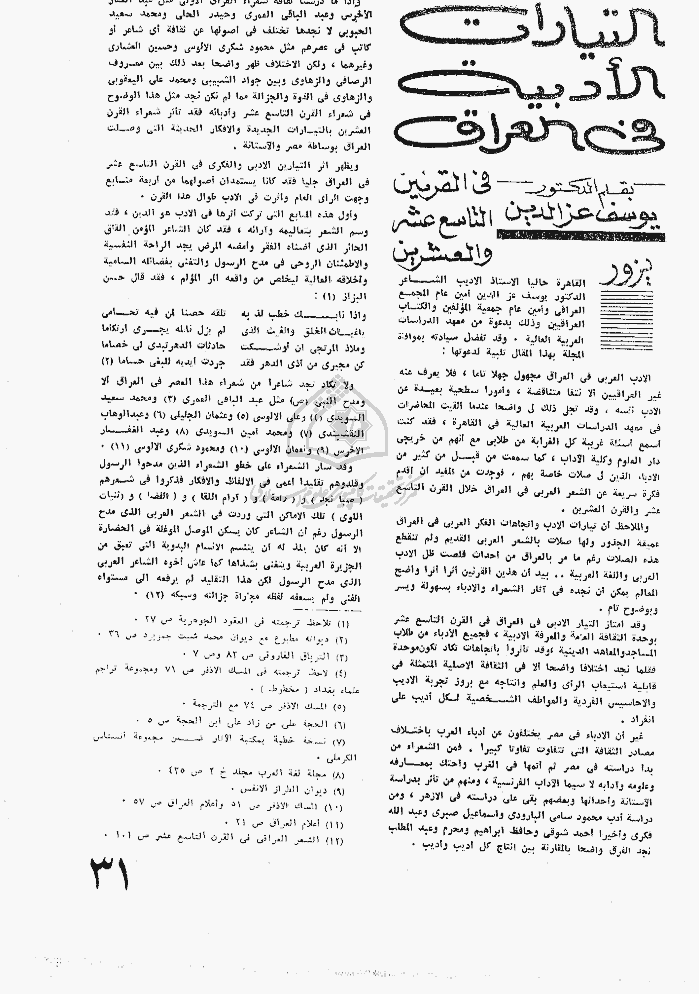 التيارات
الأدبية
فى العراق
فى القرنين
التاسع عشر
والعشرين
بقلم الدكتور
يوسف عز الدين
يزور
القاهرة حاليا الاستاذ الاديب الشاعر
الدكتور يوسف عز الدين أمين عام المجمع
العراقى وأمين عام جمعية المؤلفين والكتاب
العراقيين وذلك بدعوة من معهد الدراسات
العربية العالية . وقد تفضل سيادته بموافاة
المجلة بهذا المقال تلبية لدعوتها :
الادب العربى فى العراق مجهول جهلا تاما ، فلا يعرف عنه
غير العراقيين الا نتفا متناقضة ، وأمورا سطحية بعيدة عن
الادب نفسه . وقد تجلى ذلك لى واضحا عندما القيت المحاضرات
فى معهد الدراسات العربية العالية فى القاهرة ، فقد كنت
أسمع أسئلة غريبة كل الغرابة من طلابى مع أنهم من خريجى
دار العلوم وكلية الآداب ، كما سمعت من قبل من كثير من
الادباء الذين لى صلات خاصة بهم . فوجدت من المفيد ان اقدم
فكرة سريعة عن الشعر العربى فى العراق خلال القرن التاسع
عشر والقرن العشرين .
والملاحظ أن تيارات الادب واتجاهات الفكر العربى فى العراق
عميقة الجذور ولها صلات بالشعر العربى القديم ولم تنقطع
هذه الصلات رغم ما مر بالعراق من أحداث قلصت ظل الادب
العربى واللغة العربية .. بيد أن هذين القرنين أثرا أثرا واضح
المعالم يمكن أن نجده فى آثار الشعراء والادباء بسهولة ويسر
وبوضوح تام .
وقد امتاز التيار الادبى فى العراق فى القرن التاسع عشر
بوحدة الثقافة العامة والمعرفة الادبية ، فجميع الأدباء من طلاب
المساجد والمعاهد الدينية ، وقد تأثروا باتجاهات تكاد تكون موحدة
فقلما نجد اختلافا واضحا الا فى الثقافة الاصلية المتمثلة فى
قابلية استيعاب الرأى والعلم وانتاجه مع بروز تجربة الاديب
والاحاسيس الفردية والعواطف الشخصية لكل أديب على
انفراد .
غير أن الادباء فى مصر يختلفون عن أدباء العرب باختلاف
مصادر الثقافة التى تتفاوت تفاوتا كبيرا . فمن الشعراء من
بدأ دراسته فى مصر ثم أتمها فى الغرب واحتك بمعارفه
وعلومه وآدابه لا سيما الآداب الفرنسية ، ومنهم من تأثر بدراسة
الآستانة وأحداثها وبعضهم بقى على دراسته فى الازهر ، ومن
دراسة أدب محمود سامى البارودى واسماعيل صبرى وعبد الله
فكرى وأخيرا أحمد شوقى وحافظ ابراهيم ومحرم وعبد المطلب
نجد الفرق واضحا بالمقارنة بين انتاج كل أديب وأديب .
الأخرس وعبد الباقى العمرى وحيدر الحلى ومحمد سعيد
الحبوبى لا نجدها تختلف فى أصولها عن ثقافة أى شاعر أو
كاتب فى عصرهم مثل محمود شكرى الالوسى وحسين العشارى
وغيرهما ، ولكن الاختلاف ظهر واضحا بعد ذلك بين معروف
الرصافى والزهاوى وبين جواد الشبيبى ومحمد على اليعقوبى
والزهاوى فى القوة والجزالة مما لم نكن نجد مثل هذا الوضوح
فى شعراء القرن التاسع عشر وأدبائه فقد تأثر شعراء القرن
العشرين بالتيارات الجديدة والافكار الحديثة التى وصلت
العراق بوساطة مصر والآستانة .
ويظهر أثر التيارين الادبى والفكرى فى القرن التاسع عشر
فى العراق جليا فقد كانا يستمدان أصولهما من أربعة منابع
وجهت الرأى العام وأثرت فى الادب طوال هذا القرن .
وأول هذه المنابع التى تركت أثرها فى الادب هو الدين ، فقد
وسم الشعر بتعاليمه وآرائه ، فقد كان الشاعر المؤمن القلق
الحائر الذى أضناه الفقر وأمضه المرض يجد الراحة النفسية
والاطمئنان الروحى فى مدح الرسول والتغنى بفضائله السامية
وأخلاقه العالية ليخلص من واقعه المر المؤلم ، فقد قال حسن
البزاز (١) :
واذا نابك خطب لذ به تلقه حصنا لمن فيه تحامى
الخلق والغيث الذى لم يزل نائله يجرى
وملاذ المرتجى ان أوشكت حادثات الدهر تبدى لى خصاما
كن مجيرى من أذى الدهر فقد جردت أيديه للبغى حساما (٢)
ولا نكاد نجد شاعرا من شعراء هذا العصر فى العراق الا
ومدح النبى (ص) مثل عبد الباقى العمرى (٣) ومحمد سعيد
السويدى (٤) وعلى الالوسى (٥) وعثمان الجليلى (٦) وعبد الوهاب
النقشبندى (٧) ومحمد أمين السويدى (٨) وعبد الغفار
الاخرس (٩) ونعمان الالوسى (١٠) ومحمود شكرى الالوسى (١١) .
وقد سار الشعراء على خطو الشعراء الذين مدحوا الرسول
وقلدوهم تقليدا أعمى فى الالفاظ والافكار فذكروا فى شعرهم
( صبا نجد ) و ( رامة ) و ( آرام النقا ) و ( الغضا ) و ( ثنيات
اللوى ) تلك الاماكن التى وردت فى الشعر العربى الذى مدح
الرسول رغم أن الشاعر كان يسكن الموصل الموغلة فى الحضارة
الا أنه كان يلذ له أن يتنسم الانسام البدوية التى تعبق من
الجزيرة العربية ويتغنى بشذاها كما عاش أخوه الشاعر العربى
الذى مدح الرسول لكن هذا التقليد لم يرفعه الى مستواه
الفنى ولم يسعفه لفظه مجاراة جزالته وسبكه (١٢) .
(١) تلاحظ ترجمته فى العقود الجوهرية ص ٢٧ .
(٢) ديوانه مطبوع مع ديوان محمد شيت جومرد ص ٣٦ .
(٣) الترياق الفاروقى ص ٨٢ وص ٧ .
(٤) لاحظ ترجمته فى المسك الاذفر ص ٧٦ ومجموعة تراجم
علماء بغداد ( مخطوط ) .
(٥) المسك الاذفر ص ٧٤ مع الترجمة .
(٦) الحجة على من زاد على ابن الحجة ص ٥ .
(٧) نسخة خطية بمكتبة الآثار ضمن مجموعة انستاس
الكرملى .
(٨) مجلة لغة العرب مجلد خ ٢ ص ٤٣٥ .
(٩) ديوان الطراز الانفس .
(١٠) المسك الاذفر ص ٥١ وأعلام العراق ص ٥٧ .
(١١) أعلام العراق ص ٢١ .
(١٢) الشعر العراقى فى القرن التاسع عشر ص ١٠١ .
٣١